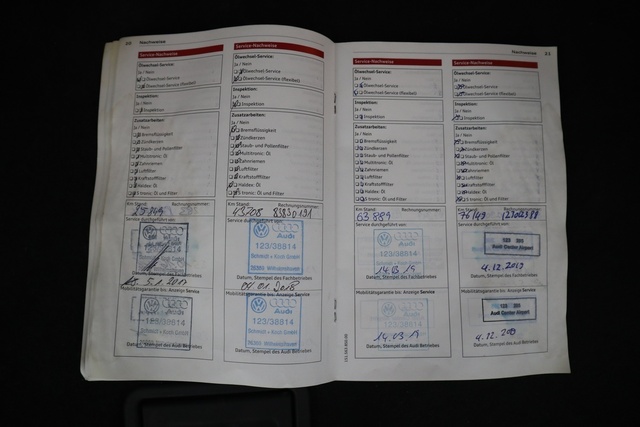 Nachweise
Service-Nachweise
Ölwechsel-Service:
Ja / Nein
Ölwechsel-Service
Ölwechsel-Service (flexibel)
Inspektion:
Ja / Nein
Inspektion
Zusatzarbeiten:
Ja / Nein
Bremsflüssigkeit
Zündkerzen
Staub- und Pollenfilter
Multitronic: Öl
Zahnriemen
Luftfilter
Kraftstofffilter
Haldex: Öl
S tronic: Öl und Filter
Km Stand: Rechnungsnummer:
Service durchgeführt von:
Mobilitätsgarantie bis: Anzeige Service
Datum, Stempel des Audi Betriebes
Service-Nachweise
Ölwechsel-Service:
Ja / Nein
Ölwechsel-Service
Ölwechsel-Service (flexibel)
Inspektion:
Ja / Nein
Inspektion
Zusatzarbeiten:
Ja / Nein
Bremsflüssigkeit
Zündkerzen
Staub- und Pollenfilter
Multitronic: Öl
Zahnriemen
Luftfilter
Kraftstofffilter
Haldex: Öl
S tronic: Öl und Filter
Km Stand: Rechnungsnummer:
43208
Service durchgeführt von:
Audi
123/38814
Schmidt + Koch GmbH
26389 Wilhelmshaven
Datum, Stempel des Fachbetriebes
04.01.2018
Mobilitätsgarantie bis: Anzeige Service
Audi
123/38814
Schmidt + Koch GmbH
26389 Wilhelmshaven
Datum, Stempel des Audi Betriebes
Service-Nachweise
Ölwechsel-Service:
Ja / Nein
Ölwechsel-Service
Ölwechsel-Service (flexibel)
Inspektion:
Ja / Nein
Inspektion
Zusatzarbeiten:
Ja / Nein
Bremsflüssigkeit
Zündkerzen
Staub- und Pollenfilter
Multitronic: Öl
Zahnriemen
Luftfilter
Kraftstofffilter
Haldex: Öl
S tronic: Öl und Filter
Km Stand: Rechnungsnummer:
63889
Service durchgeführt von:
Audi
123/38814
14.03.19
Datum, Stempel des Fachbetriebes
Mobilitätsgarantie bis: Anzeige Service
Audi
123/38814
14.03.19
Datum, Stempel des Audi Betriebes
Nachweise 31
Service-Nachweise
Ölwechsel-Service:
Ja / Nein
Ölwechsel-Service
Ölwechsel-Service (flexibel)
Inspektion:
Ja / Nein
Inspektion
Zusatzarbeiten:
Ja / Nein
Bremsflüssigkeit
Zündkerzen
Staub- und Pollenfilter
Multitronic: Öl
Zahnriemen
Luftfilter
Kraftstofffilter
Haldex: Öl
S tronic: Öl und Filter
Km Stand: Rechnungsnummer:
76149
Service durchgeführt von:
Audi Center Airport
4.12.2019
Datum, Stempel des Fachbetriebes
Mobilitätsgarantie bis: Anzeige Service
Audi Center Airport
4.12.2019
Datum, Stempel des Audi Betriebes